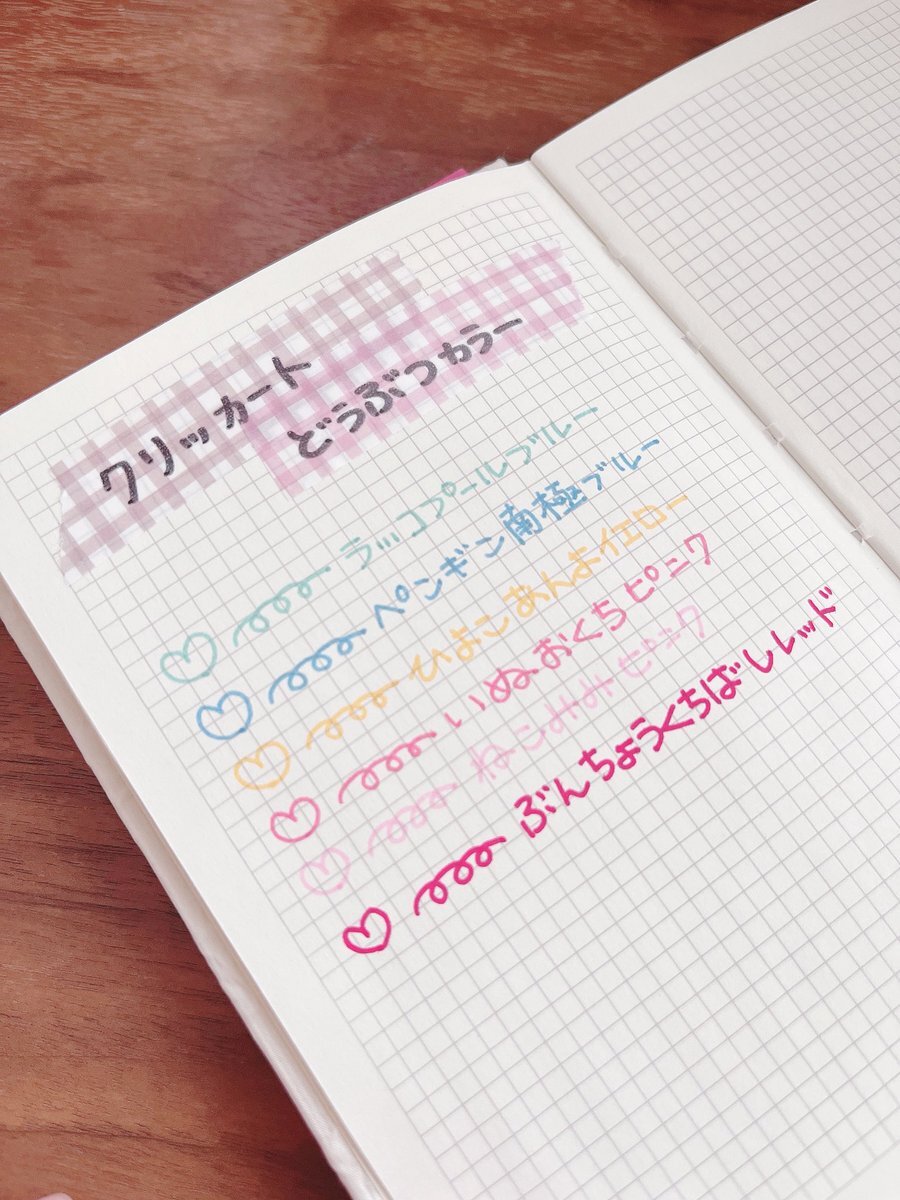 クリッカート
どうぶつカラー
ラッコプールブルー
ペンギン南極ブルー
ひよこあんよイエロー
いぬおくちピンク
ねこみみピンク
ぶんちょうくちばしレッド